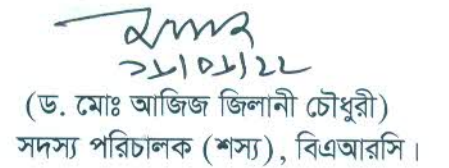 (ড. মোঃ আজিজ জিলানী চৌধুরী)
সদস্য পরিচালক (শস্য), বিএআরসি।